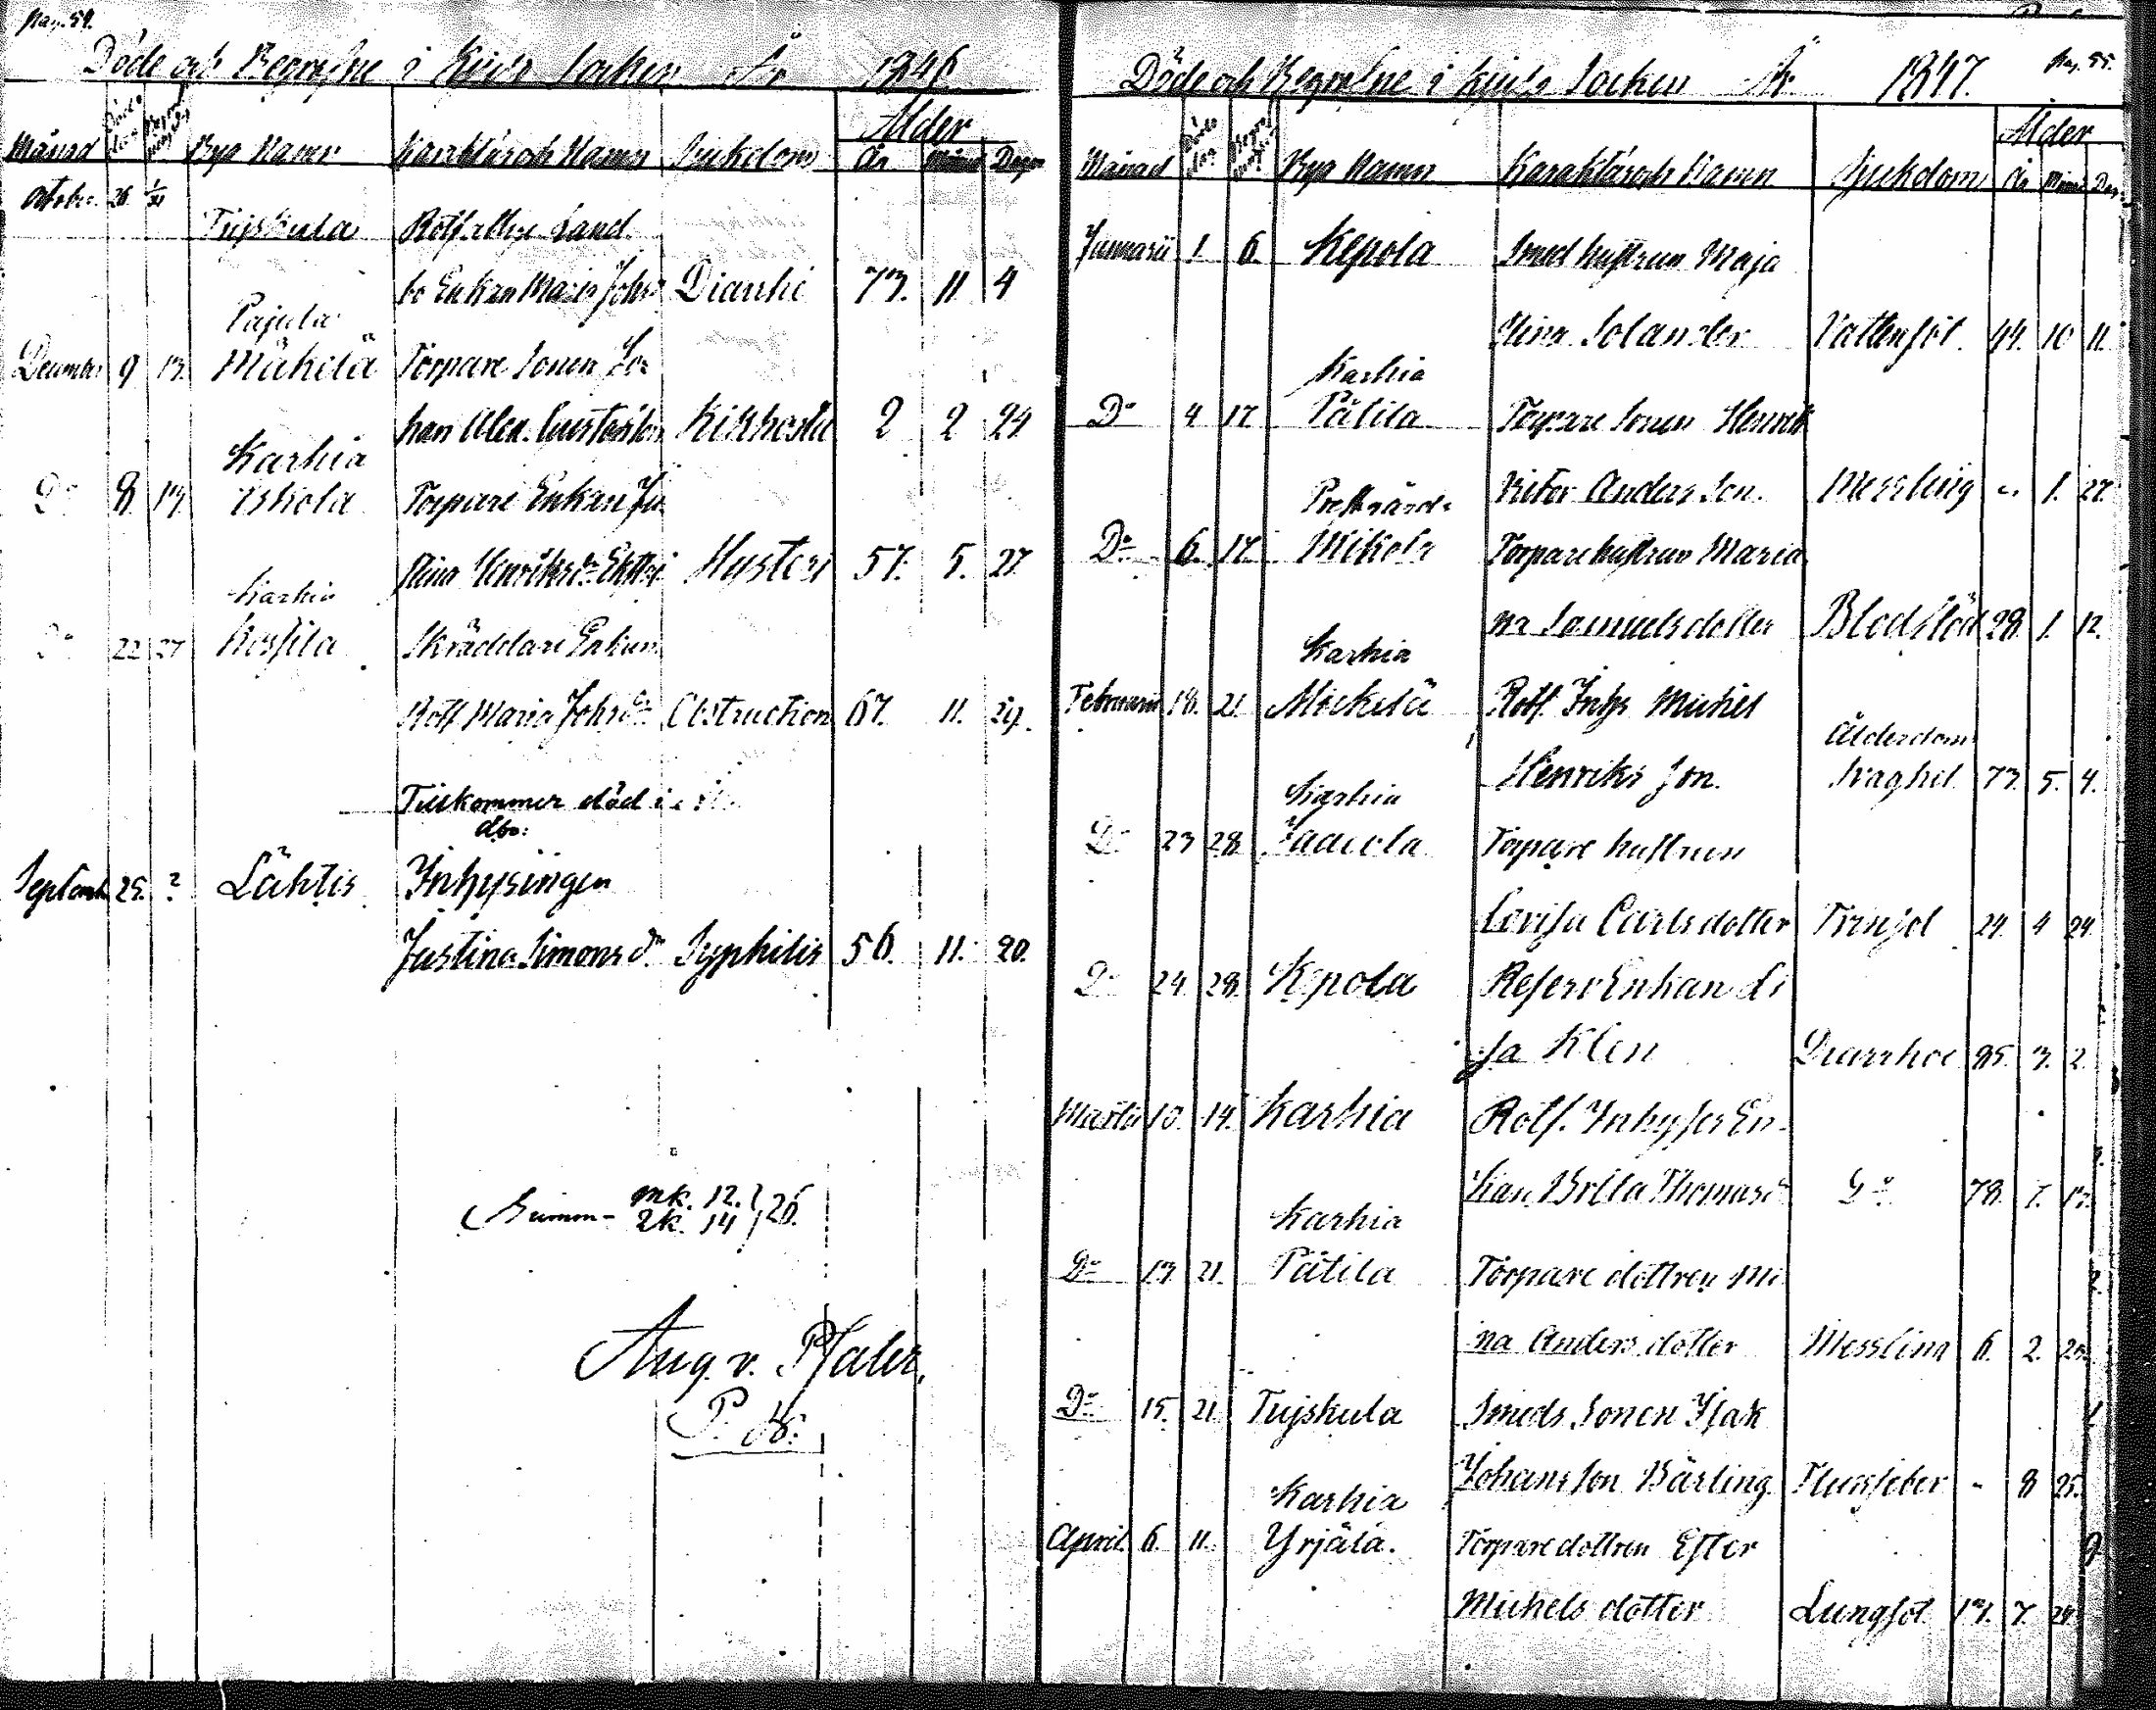 Pag. 54.
Döde och Begrafne i Kjulo Socken År 1846
Månad Döds dag Begrafn. dag Bya Namn Karaktär och Namn Sjukdom Ålder
År Månad Dagar
October 26 1/11 Tujskula Rotf. Afls. Sand
bo Enkan Maria Johsdr Diarrhé 73. 11 4
Pajula
December 9 13. Mäkelä Torpare Sonen Jo
han Alex. Gustafsson Kikhosta 2 2 24
Karhia
Do 8 13. Eskola Torpare Enkan Ju
stina Henriksdr Hysteri 57. 5. 27.
Karhia
Do 22 27 Kossila Skräddare Enkan
Rotf Maria Johsdr Obstruction 67. 11. 29.
Tillkommer död i
dbo:
Septemb. 25. ? Lähtis Inhysingen
Justina Simonsdr Syphilis 56. 11. 20.
Summa mk. 12. } 26.
qk. 14
Aug. v. Pfaler,
P. 
Pag. 55.
Döde och Begrafne i Kjulo Socken År 1847.
Månad Döds dag Begrafn. dag Bya Namn Karaktär och Namn Sjukdom Ålder
År Månad Dag.
Januarii 1. 6. Kepola Smed hustrun Maja
Stina Solander Vattensot. 44. 10 11.
Karhia
Do 4 17 Pätilä Torpare Sonen Henrik
Victor Anders Son. Messling „ 1. 27.
Prestgårds
Do 6. 17. Mikola Torpare hustrun Maria
na Samuels dotter Blodflöd 28. 1. 12.
Karhia
Februarii 18. 21. Mickelä Rotf. Inhs Michel
Henriks Son. Ålderdoms
Svaghet 73. 5. 4.
Karhia
Do 23 28. Jaacola Torpare hustrun
Lovisa Carls dotter Trånsot 24. 4 24.
Do 24. 28. Kepola Reserv Enkan Li
sa Klen Diarrhoe 85. 3. 2.
Martii 10. 14. Karhia Rotf. Inhyses En-
kan Britta Thomasdr Do 78. 7. 13.
Karhia
Do 13. 21. Pätilä Torpare dottren Mi
na Anders dotter Messling 6. 2. 26.
Do 15. 21 Tujskula Smeds Sonen Isak
Johans Son Bärling Flussfeber - 8 25.
Karhia
April. 6. 11. Yrjälä. Torpare dottren Ester
Michels dotter Lungsot 13. 7. 24.